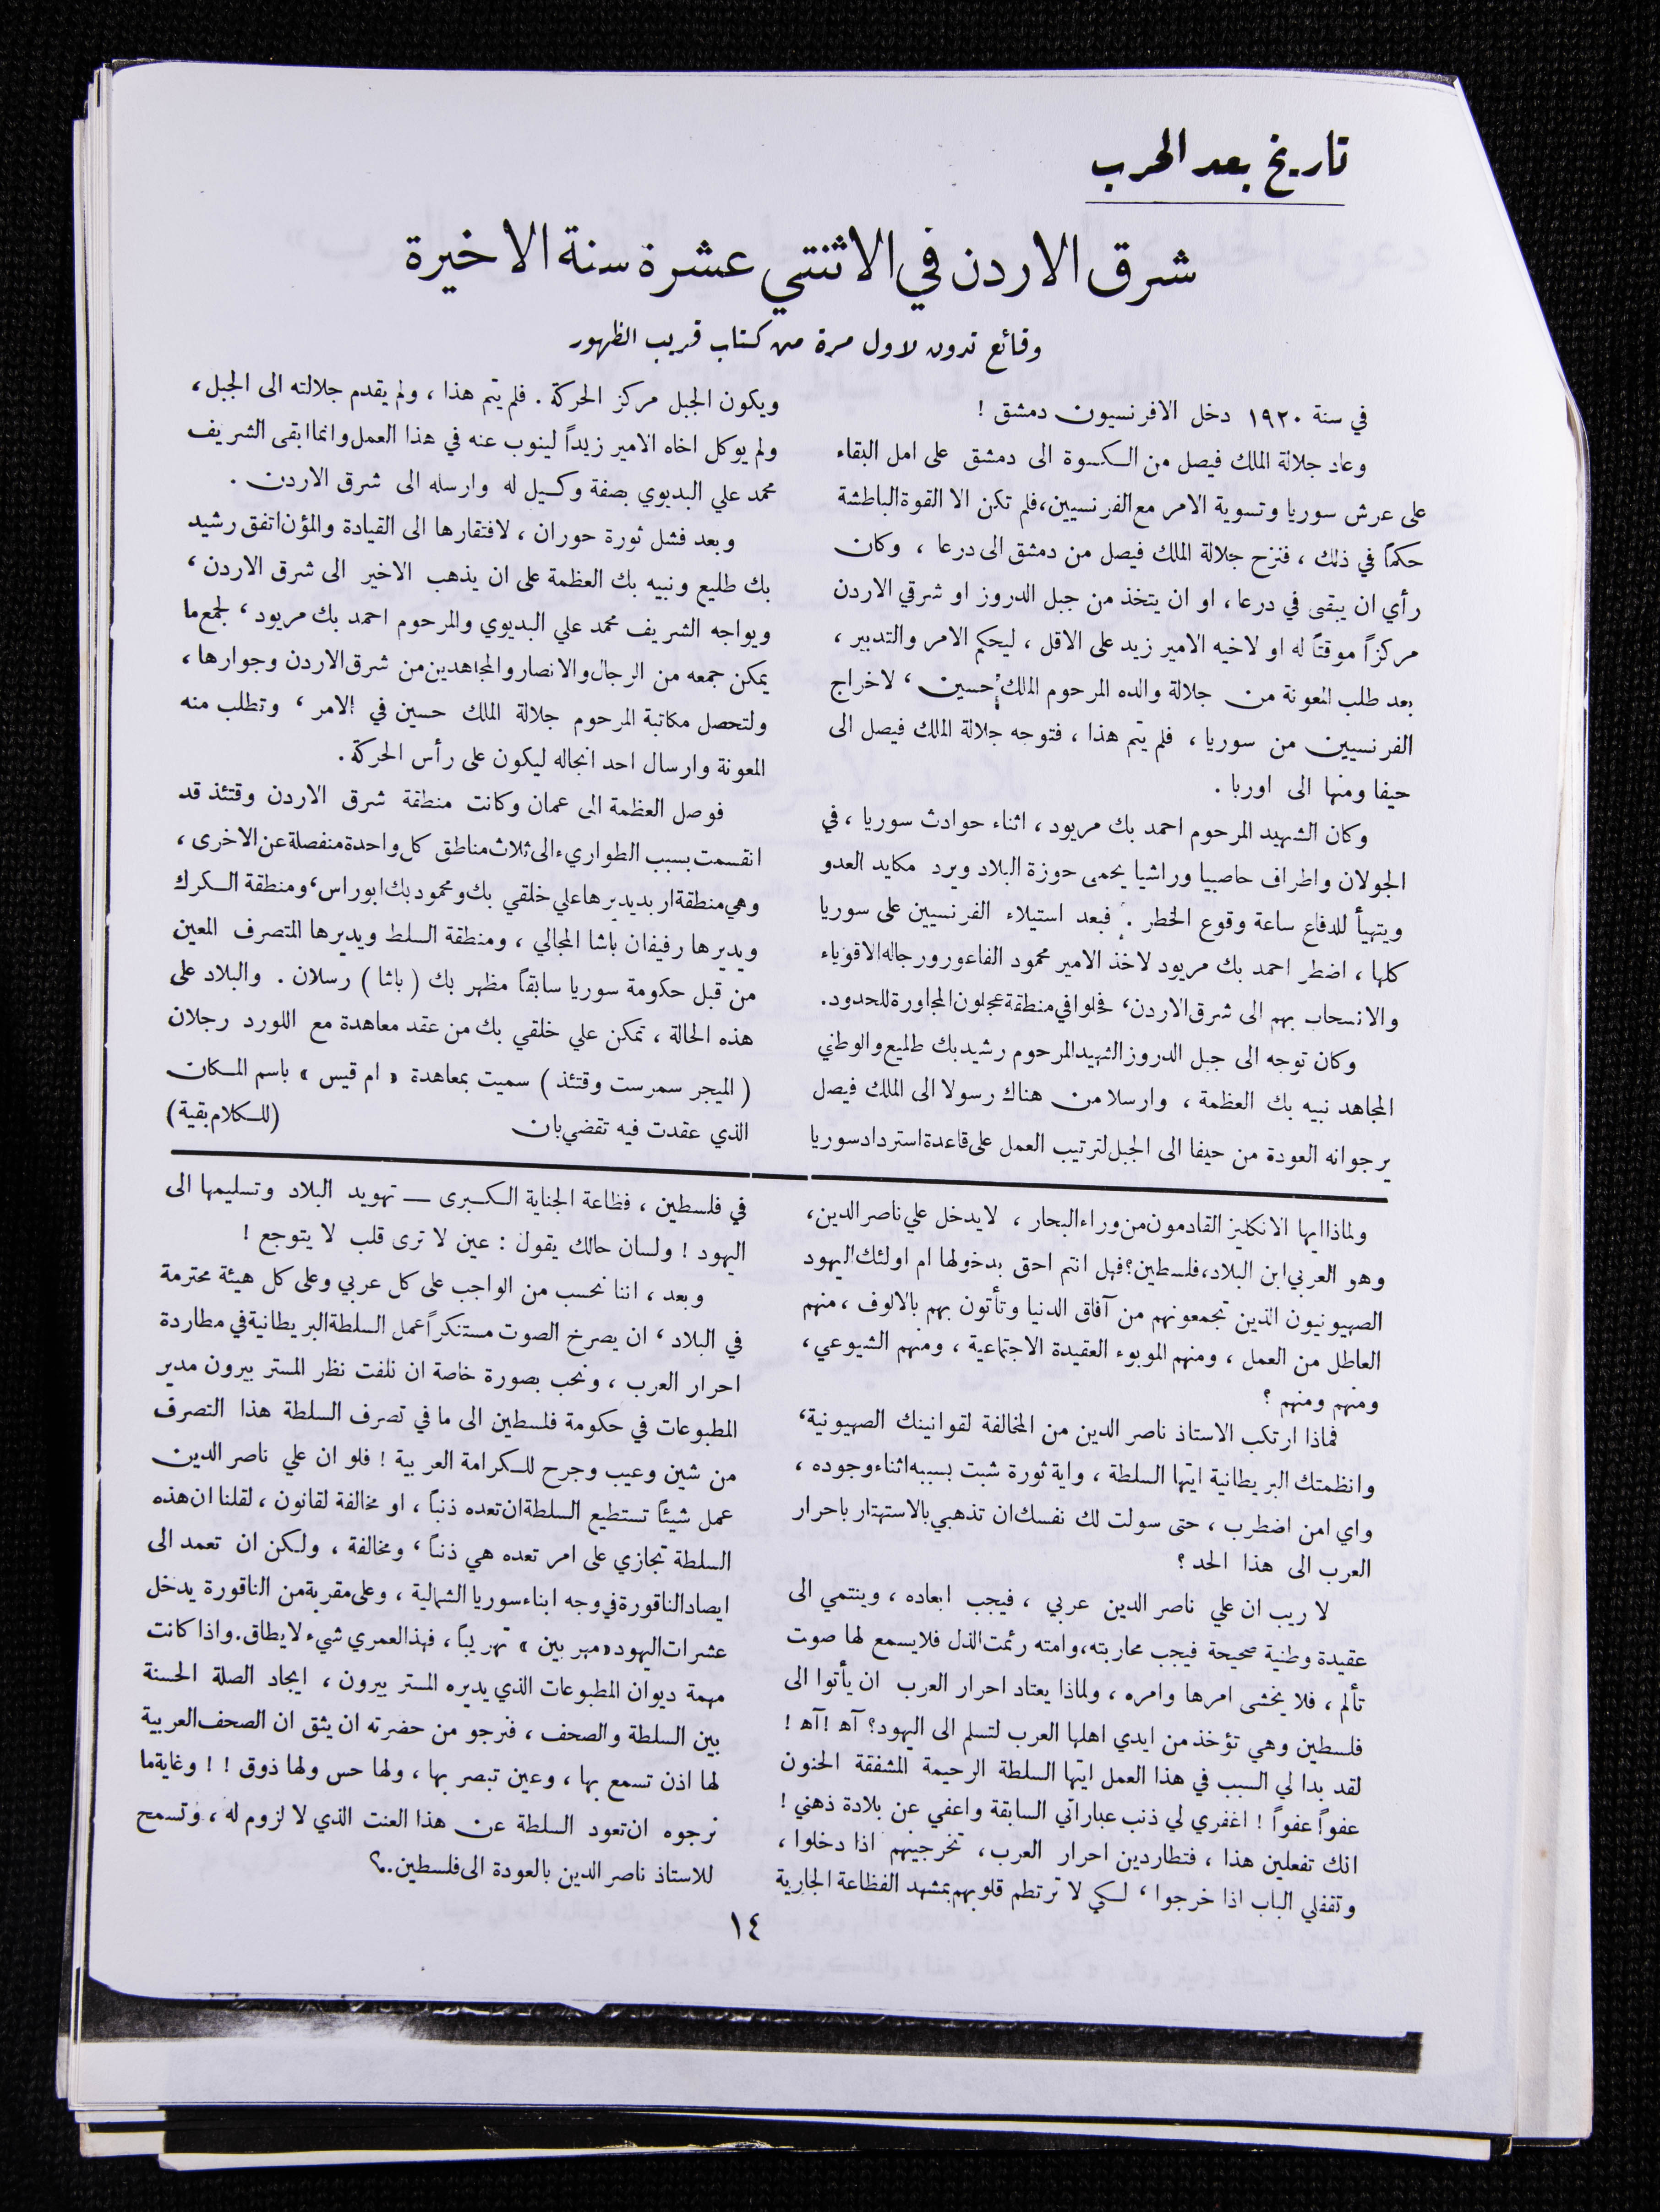 تاريخ بعد الحرب
شرق الاردن في الاثنتي عشرة سنة الاخيرة
وقائع تدون لاول مرة من كتاب قريب الظهور
في سنة ١٩٢٠ دخل الافرنسيون دمشق !
وعاد جلالة الملك فيصل من الكسوة الى دمشق على امل البقاء
على عرش سوريا وتسوية الامر مع الفرنسيين، فلم تكن الا القوة الباطشة
حكماً في ذلك ، فنزح جلالة الملك فيصل من دمشق الى درعا ، وكان
رأي ان يبقى في درعا ، او ان يتخذ من جبل الدروز او شرقي الاردن
مركزاً موقتاً له او لاخيه الامير زيد على الاقل ، ليحكم الامر والتدبير ،
بعد طلب المعونة من جلالة والده المرحوم الملك حسين ، لاخراج
الفرنسيين من سوريا ، فلم يتم هذا ، فتوجه جلالة الملك فيصل الى
حيفا ومنها الى اوربا .
وكان الشهيد المرحوم احمد بك مريود ، اثناء حوادث سوريا ، في
الجولان واطراف حاصبيا وراشيا يحمى حوزة البلاد ويرد مكايد العدو
ويتهيأ للدفاع ساعة وقوع الخطر . فبعد استيلاء الفرنسيين على سوريا
كلها ، اضطر احمد بك مريود لاخذ الامير محمود الفاعور ورجاله الاقوياء
والانسحاب بهم الى شرق الاردن، فحلوا في منطقة عجلون المجاورة للحدود.
وكان توجه الى جبل الدروز الشهيد المرحوم رشيد بك طليع والوطني
المجاهد نبيه بك العظمة ، وارسلا من هناك رسولا الى الملك فيصل
يرجوانه العودة من حيفا الى الجبل لترتيب العمل على قاعدة استرداد سوريا
ويكون الجبل مركز الحركة . فلم يتم هذا ، ولم يقدم جلالته الى الجبل ،
ولم يوكل اخاه الامير زيداً لينوب عنه في هذا العمل وانما ابقى الشريف
محمد علي البديوي بصفة وكيل له وارسله الى شرق الاردن .
وبعد فشل ثورة حوران ، لافتقارها الى القيادة والمؤن اتفق رشيد
بك طليع ونبيه بك العظمة على ان يذهب الاخير الى شرق الاردن ،
ويواجه الشريف محمد علي البديوي والمرحوم احمد بك مريود ، لجمع ما
يمكن جمعه من الرجال والانصار والمجاهدين من شرق الاردن وجوارها ،
ولتحصل مكاتبة المرحوم جلالة الملك حسين في الامر ، وتطلب منه
المعونة وارسال احد انجاله ليكون على رأس الحركة .
فوصل العظمة الى عمان وكانت منطقة شرق الاردن وقتئذ قد
انقسمت بسبب الطواريء الى ثلاث مناطق كل واحدة منفصلة عن الاخرى ،
وهي منطقة اربد يديرها علي خلقي بك ومحمود بك ابو راس، ومنطقة الكرك
ويديرها رفيفان باشا المجالي ، ومنطقة السلط ويديرها المتصرف المعين
من قبل حكومة سوريا سابقاً مظهر بك ( باشا ) رسلان . والبلاد على
هذه الحالة ، تمكن علي خلقي بك من عقد معاهدة مع اللورد رجلان
( الميجر سمرست وقتئذ ) سميت بمعاهدة « ام قيس » باسم المكان
الذي عقدت فيه تقضي بان (للكلام بقية)
ولماذا ايها الانكليز القادمون من وراء البحار ، لا يدخل علي ناصر الدين ،
وهو العربي ابن البلاد، فلسطين؟ فهل انتم احق بدخولها ام اولئك اليهود
الصهيونيون الذين تجمعونهم من آفاق الدنيا وتأتون بهم بالالوف ، منهم
العاطل من العمل ، ومنهم الموبوء العقيدة الاجتماعية ، ومنهم الشيوعي ،
ومنهم ومنهم ؟
فماذا ارتكب الاستاذ ناصر الدين من المخالفة لقوانينك الصهيونية،
وانظمتك البريطانية ايتها السلطة ، واية ثورة شبت بسببه اثناء وجوده ،
واي امن اضطرب ، حتى سولت لك نفسك ان تذهبي بالاستهتار باحرار
العرب الى هذا الحد ؟
لا ريب ان علي ناصر الدين عربي ، فيجب ابعاده ، وينتمي الى
عقيدة وطنية صحيحة فيجب محاربته، وامته رئمت الذل فلا يسمع لها صوت
تألم ، فلا يخشى امرها وامره ، ولماذا يعتاد احرار العرب ان يأتوا الى
فلسطين وهي تؤخذ من ايدي اهلها العرب لتسلم الى اليهود؟ آه ! آه !
لقد بدا لي السبب في هذا العمل ايتها السلطة الرحيمة المشفقة الحنون
عفواً عفواً ! اغفري لي ذنب عباراتي السابقة واعفي عن بلادة ذهني !
انك تفعلين هذا ، فتطاردين احرار العرب ، تخرجينهم اذا دخلوا ،
وتقفلي الباب اذا خرجوا ، لكي لا ترتطم قلوبهم بمشهد الفظاعة الجارية
في فلسطين ، فظاعة الجناية الكبرى — تهويد البلاد وتسليمها الى
اليهود ! ولسان حالك يقول : عين لا ترى قلب لا يتوجع !
وبعد ، اننا نحسب من الواجب على كل عربي وعلى كل هيئة محترمة
في البلاد ، ان يصرخ الصوت مستنكراً عمل السلطة البريطانية في مطاردة
احرار العرب ، ونحب بصورة خاصة ان نلفت نظر المستر بيرون مدير
المطبوعات في حكومة فلسطين الى ما في تصرف السلطة هذا التصرف
من شين وعيب وجرح للكرامة العربية ! فلو ان علي ناصر الدين
عمل شيئاً تستطيع السلطة ان تعده ذنباً ، او مخالفة لقانون ، لقلنا ان هذه
السلطة تجازي على امر تعده هي ذنباً ، ومخالفة ، ولكن ان تعمد الى
ايصاد الناقورة في وجه ابناء سوريا الشمالية ، وعلى مقربة من الناقورة يدخل
عشرات اليهود «مهربين » تهريباً ، فهذا لعمري شيء لا يطاق. واذا كانت
مهمة ديوان المطبوعات الذي يديره المستر بيرون ، ايجاد الصلة الحسنة
بين السلطة والصحف ، فنرجو من حضرته ان يثق ان الصحف العربية
لها اذن تسمع بها ، وعين تبصر بها ، ولها حس ولها ذوق ! ! وغاية ما
نرجوه ان تعود السلطة عن هذا العنت الذي لا لزوم له ، وتسمح
للاستاذ ناصر الدين بالعودة الى فلسطين..؟
١٤